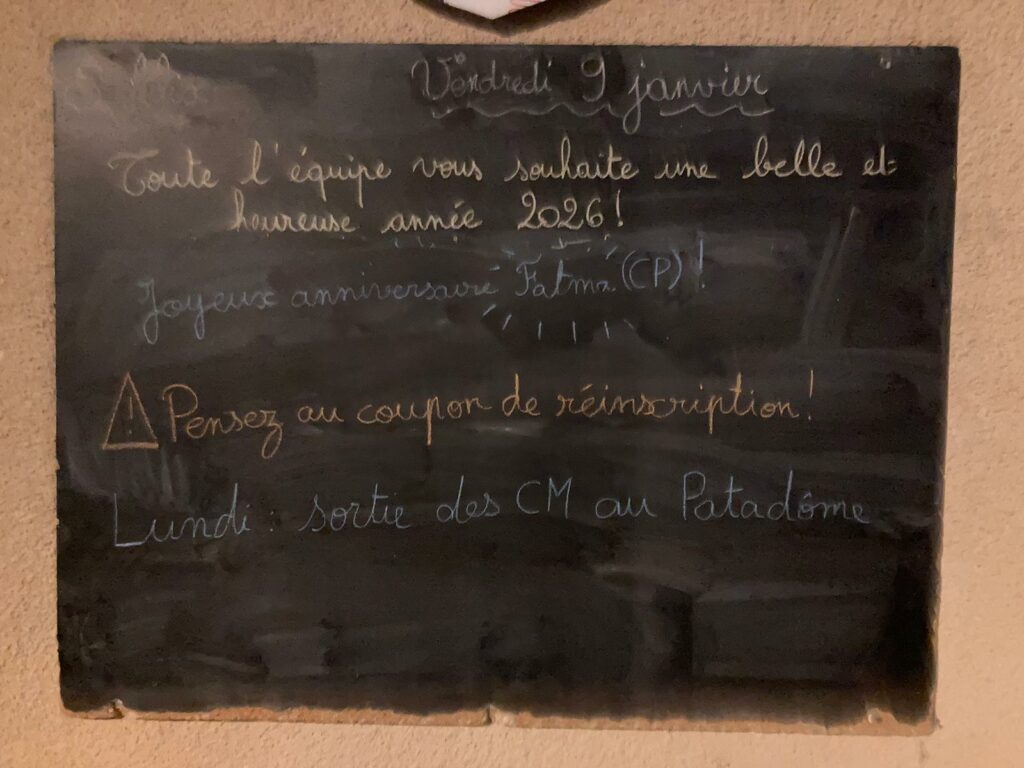 Vendredi 9 janvier
Toute l'équipe vous souhaite une belle et
heureuse année 2026!
Joyeux anniversaire Fatma (CP)!
Pensez au coupon de réinscription!
Lundi : sortie des CM au Patadôme